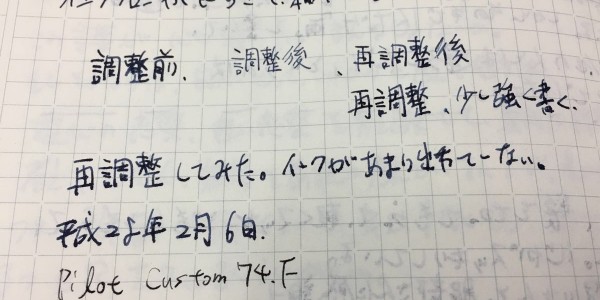 調整前、 調整後 、再調整後
再調整、少し強く書く、
再調整してみた。インクがあまり出ていない。
平成28年2月6日.
Pilot Custom 74.F